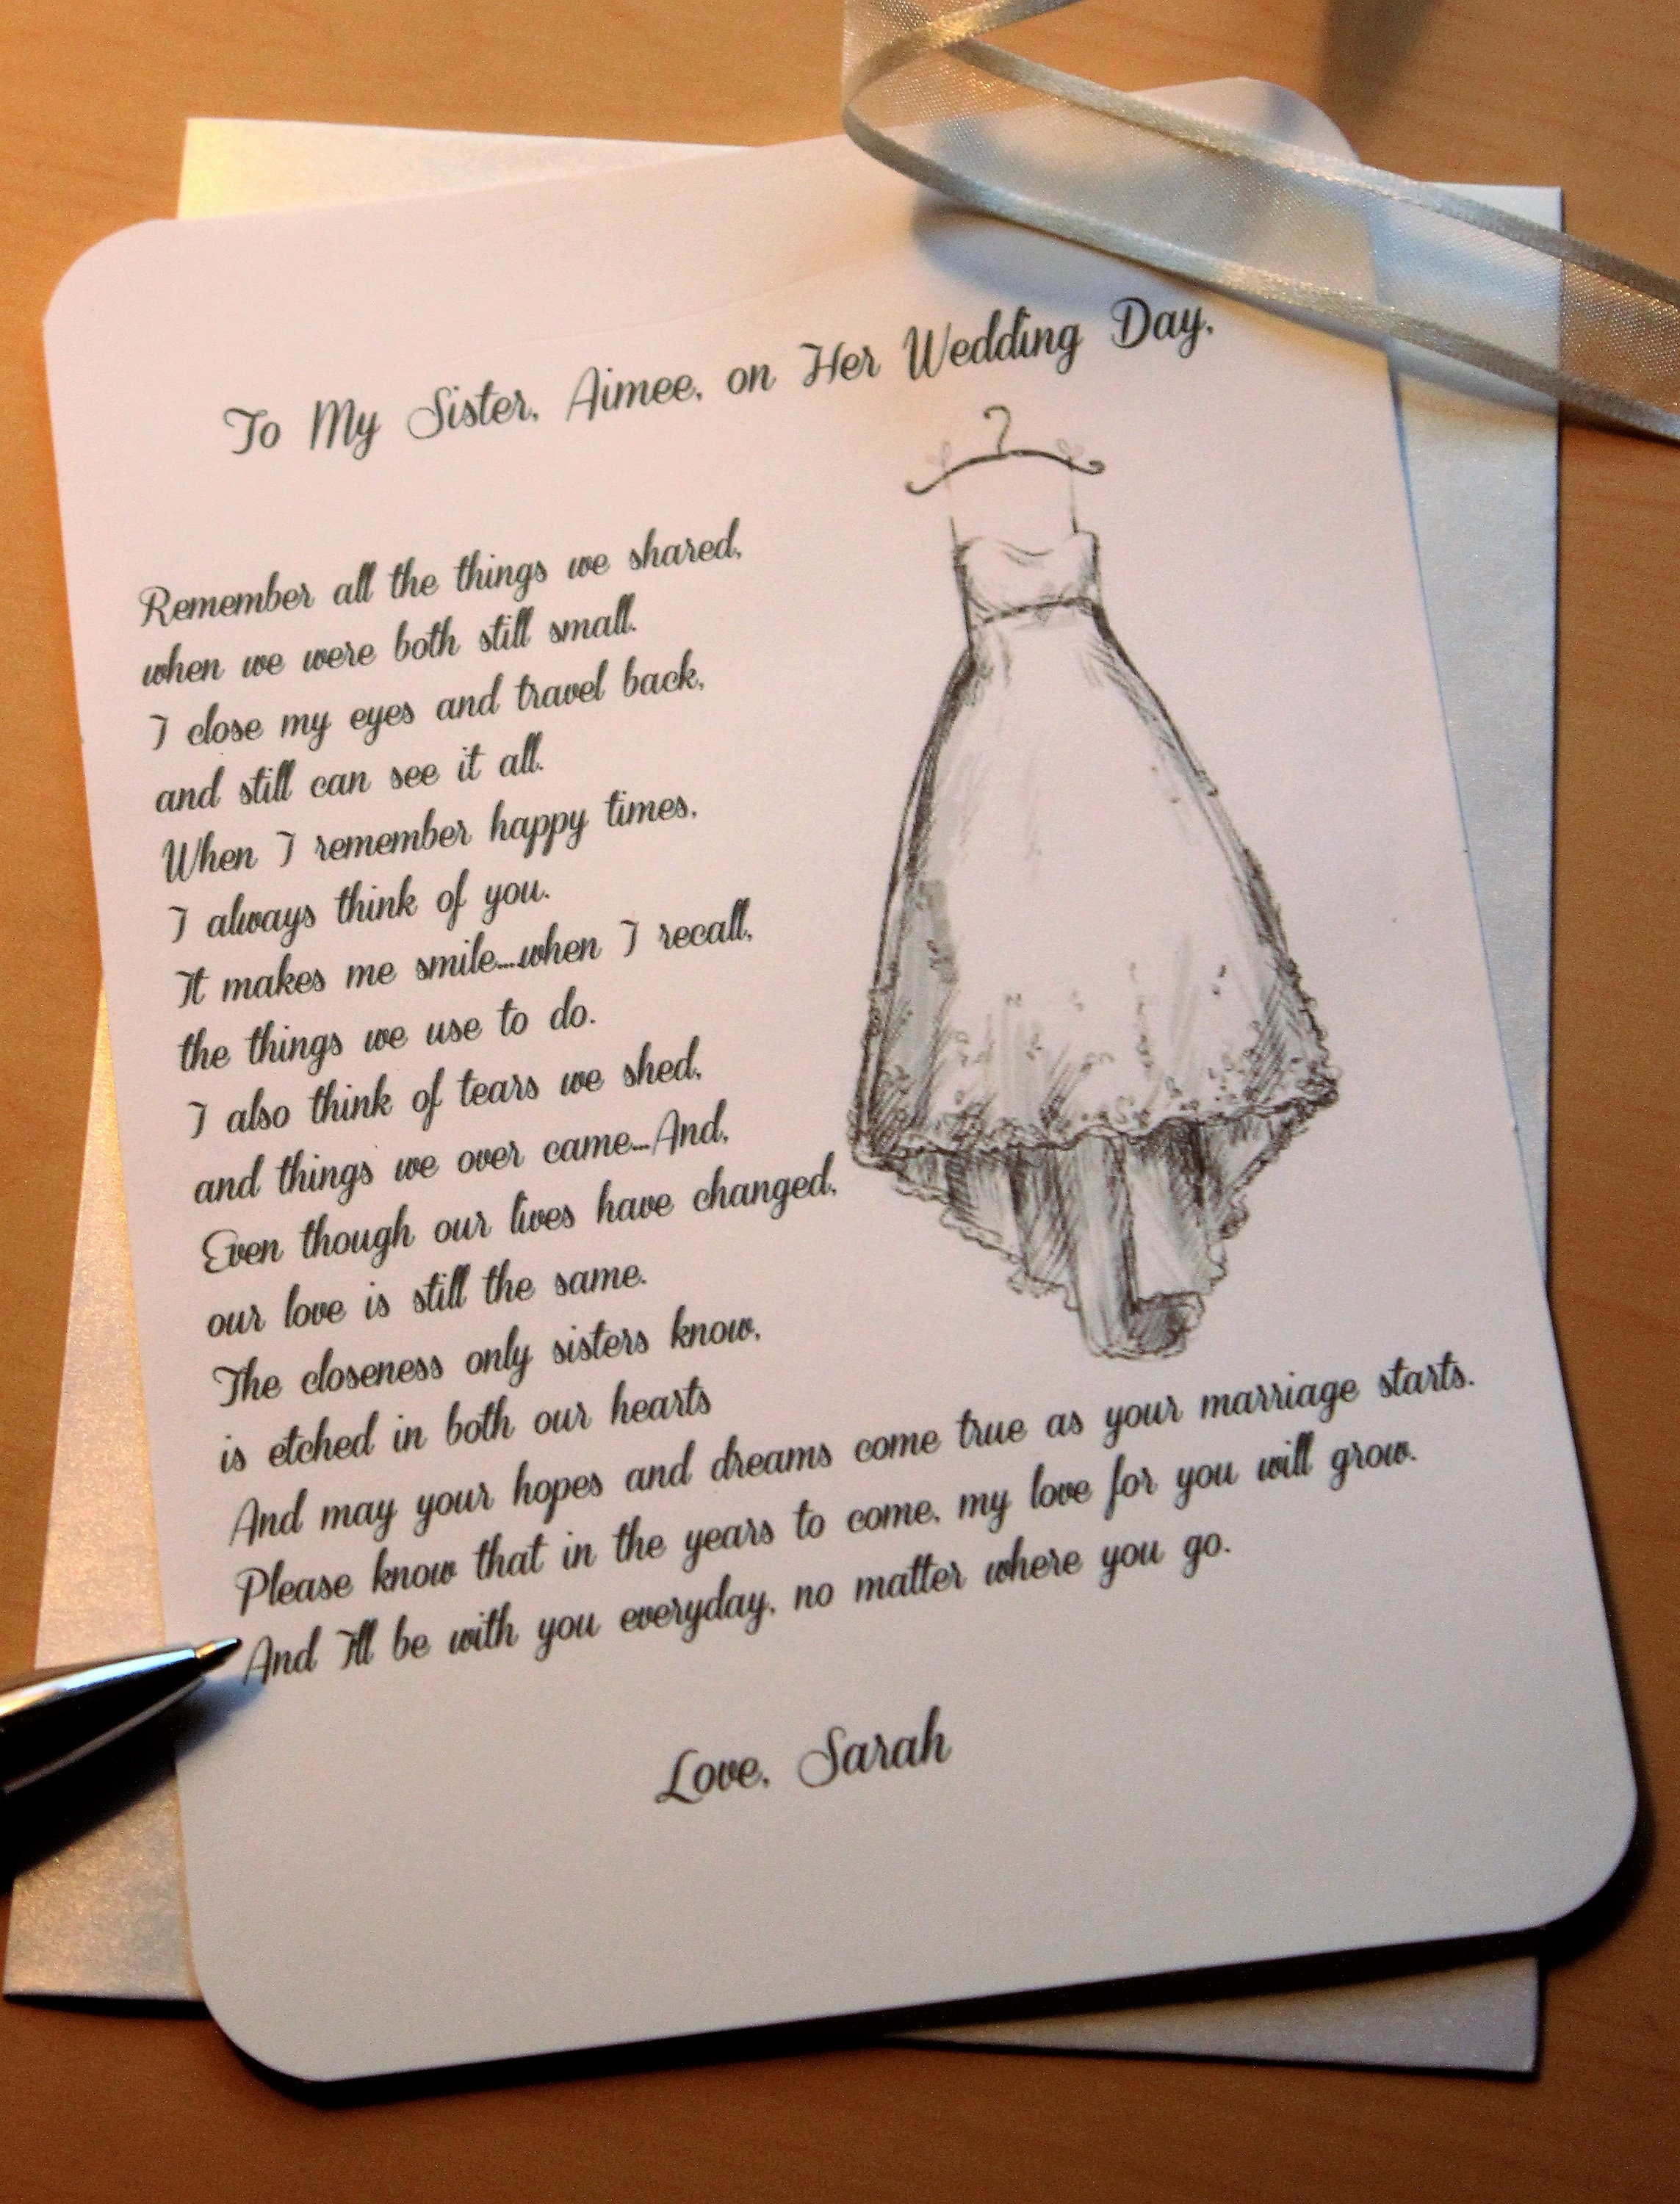 To My Sister, Aimee, on Her Wedding Day,
Remember all the things we shared,
when we were both still small.
I close my eyes and travel back,
and still can see it all.
When I remember happy times,
I always think of you.
It makes me smile....when I recall,
the things we use to do.
I also think of tears we shed,
and things we over came...And,
Even though our lives have changed,
our love is still the same.
The closeness only sisters know,
is etched in both our hearts
And may your hopes and dreams come true as your marriage starts.
Please know that in the years to come, my love for you will grow.
And I'll be with you everyday, no matter where you go.
Love, Sarah